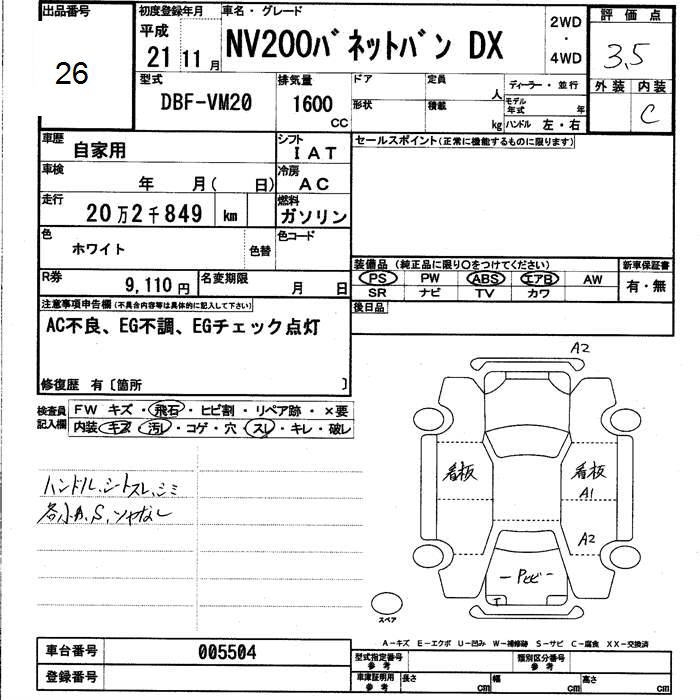 出品番号
26
初度登録年月
平成
21 11 月
車名・グレード
NV200バネットバン DX
2WD
・
4WD
評価点
3.5
外装 内装
C
型式
DBF-VM20
排気量
1600
CC
ドア
形状
定員
人
積載
kg
ディーラー・並行
モデル年式 年
ハンドル 左・右
車歴
自家用
シフト
IAT
車検
年 月( 日)
冷房
AC
走行
20万2千849 km
燃料
ガソリン
色
ホワイト
色替
色コード
R券
9,110円
名変期限
月 日
セールスポイント(正常に機能するものに限ります)
装備品 (純正品に限り〇をつけてください)
PS PW ABS エアB AW
SR ナビ TV カワ
新車保証書
有・無
後日品
注意事項申告欄(不具合内容等は具体的に記入して下さい)
AC不良、EG不調、EGチェック点灯
修復歴 有〔箇所 〕
検査員
記入欄
FW キズ・飛石・ヒビ割・リペア跡・×要
内装 キズ・汚レ・コゲ・穴・スレ・キレ・破レ
ハンドル、シートスレ、シミ
各小A,S,ツヤなし
A2
看板
看板
A1
A2
Pサビ
T
スペア
A－キズ E－エクボ U－凹み W－補修跡 S－サビ C－腐食 XX－交換済
車台番号
005504
登録番号
型式指定番号
参考
類別区分番号
参考
車庫証明用
参考
長さ cm
幅 cm
高さ cm